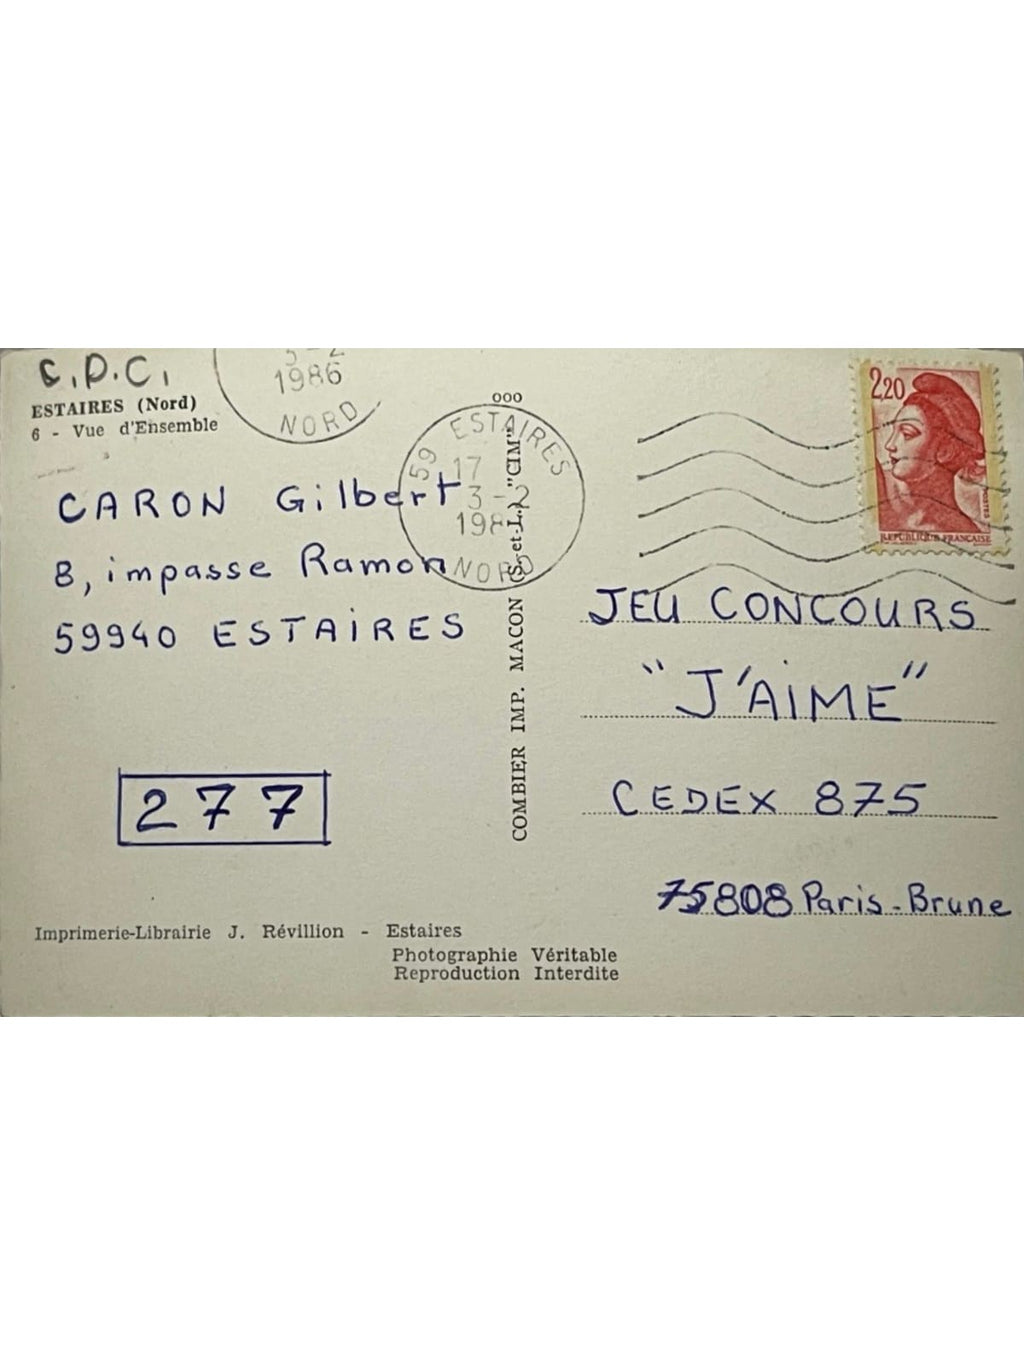 C.P.C.
ESTAIRES (Nord)
6 - Vue d'Ensemble
3-2
1986
NORD
ooo
59 ESTAIRES
17
3-2
198
NORD
COMBIER IMP. MACON (S.-et-L.) "CIM"
2,20
POSTES
REPUBLIQUE FRANCAISE
CARON Gilbert
8, impasse Ramon
59940 ESTAIRES
277
JEU CONCOURS
"J'AIME"
CEDEX 875
75808 Paris-Brune
Imprimerie-Librairie J. Révillion - Estaires
Photographie Véritable
Reproduction Interdite